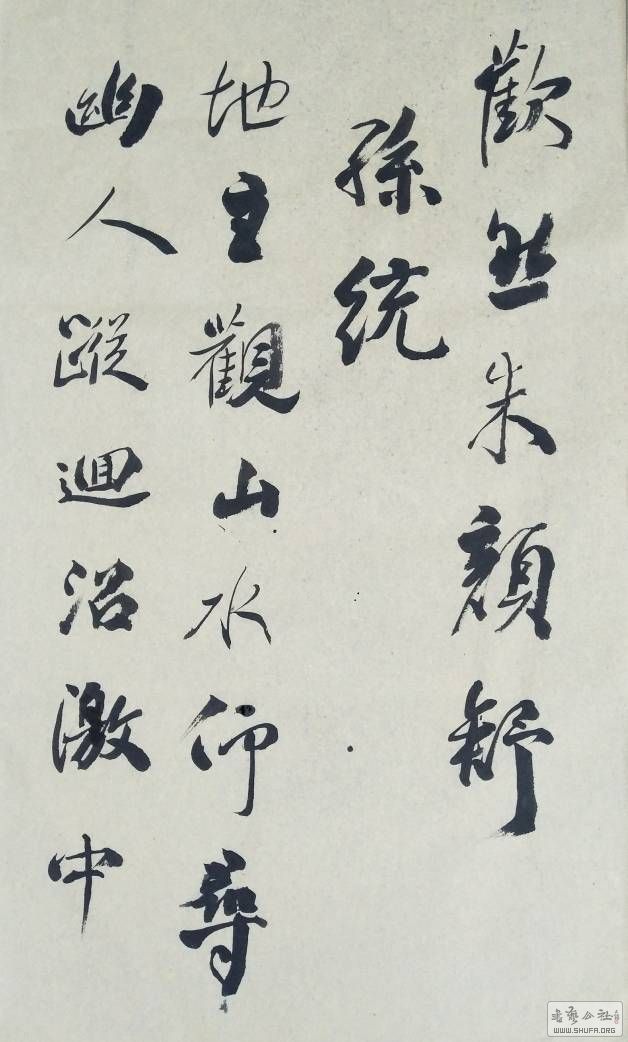 歡然朱顏舒
孫統
地主觀山水仰尋
幽人蹤迴沼激中
书艺公社
WWW.SHUFA.ORG